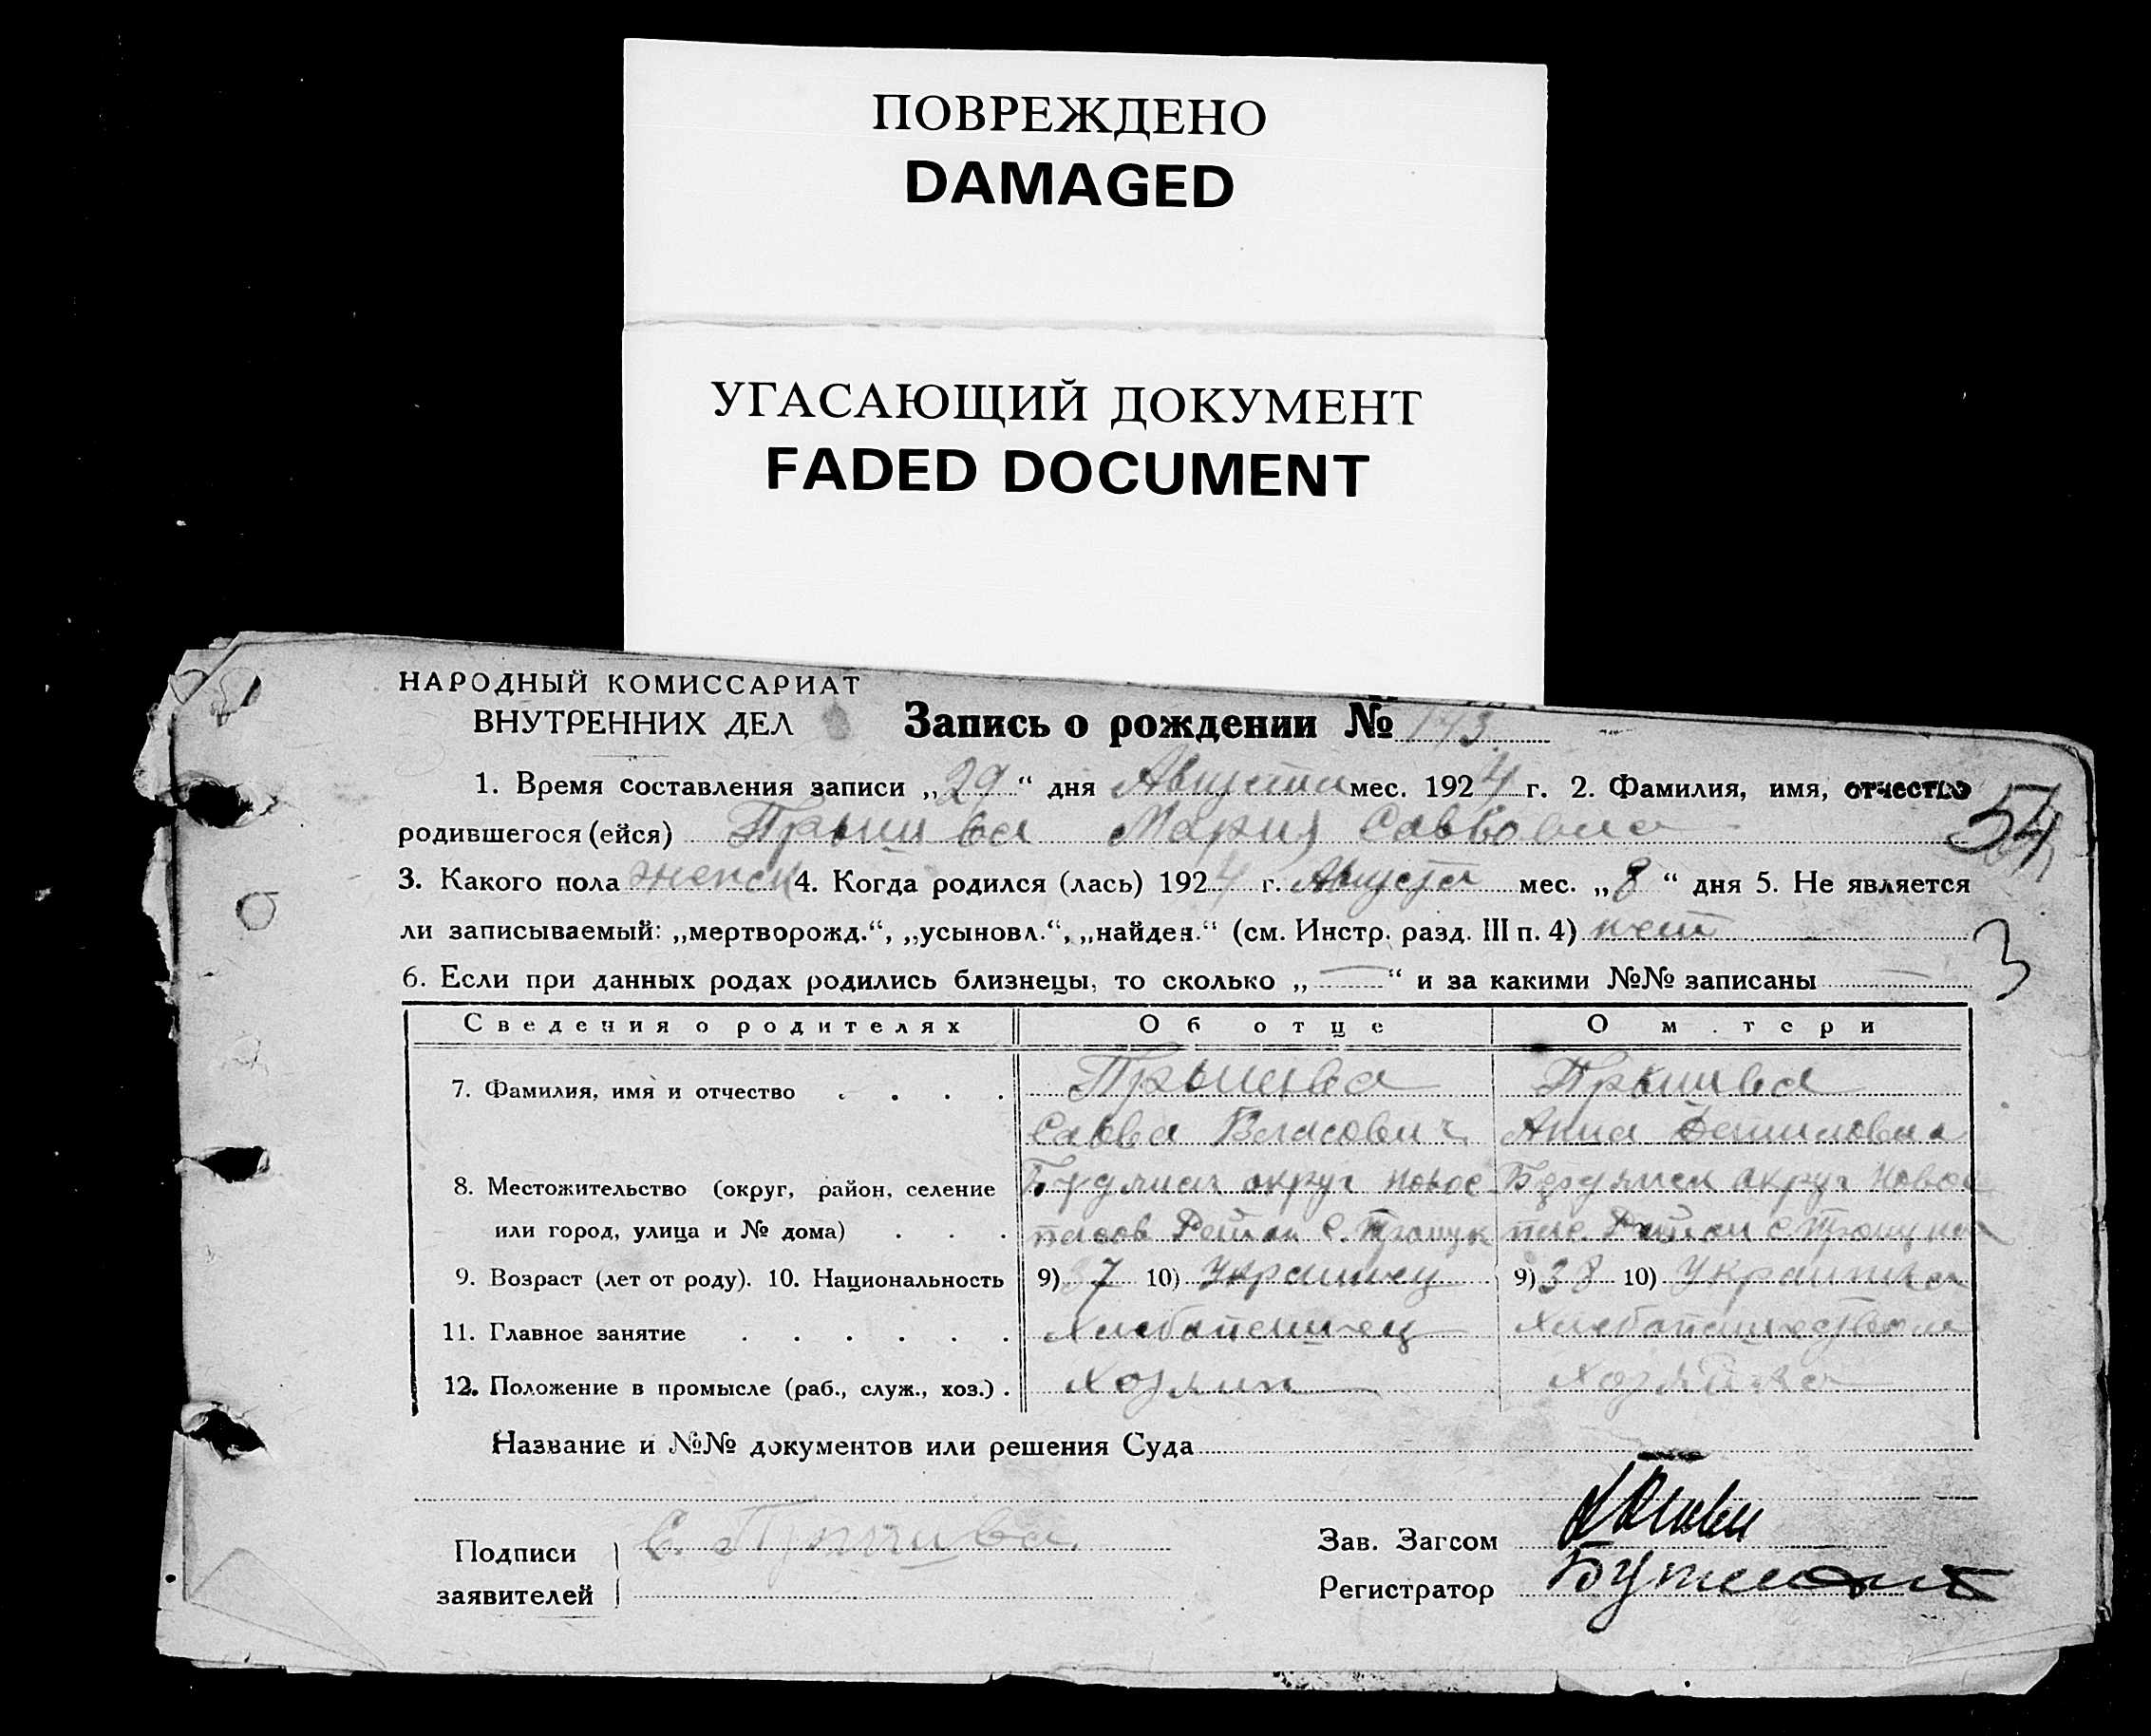 ПОВРЕЖДЕНО
DAMAGED
УГАСАЮЩИЙ ДОКУМЕНТ
FADED DOCUMENT
НАРОДНЫЙ КОМИССАРИАТ
ВНУТРЕННИХ ДЕЛ
Запись о рождении № 143
1. Время составления записи „29“ дня Августа мес. 1924 г. 2. Фамилия, имя, отчество
родившегося (ейся) Прышва Мария Саввовна
54
3. Какого пола женск 4. Когда родился (лась) 1924 г. Августа мес. „8“ дня 5. Не является
ли записываемый: „мертворожд.“, „усыновл.“, „найден.“ (см. Инстр. разд. III п. 4) нет
3
6. Если при данных родах родились близнецы, то сколько „—“ и за какими №№ записаны —
Сведения о родителях Об отце О м.тери
7. Фамилия, имя и отчество . . . . Прышва Прышва
Савва Власович Анна Даниловна
8. Местожительство (округ, район, селение округ Новос округ Новос
или город, улица и № дома) . . . пасов Район с. пас. Район с.
9. Возраст (лет от роду). 10. Национальность 9) 37 10) Украинец 9) 38 10) Украинка
11. Главное занятие . . . . . . Хлебопашец
12. Положение в промысле (раб., служ., хоз.) . Хозяин Хозяйка
Название и №№ документов или решения Суда
Подписи С. Прышва.
заявителей
Зав. Загсом
Регистратор